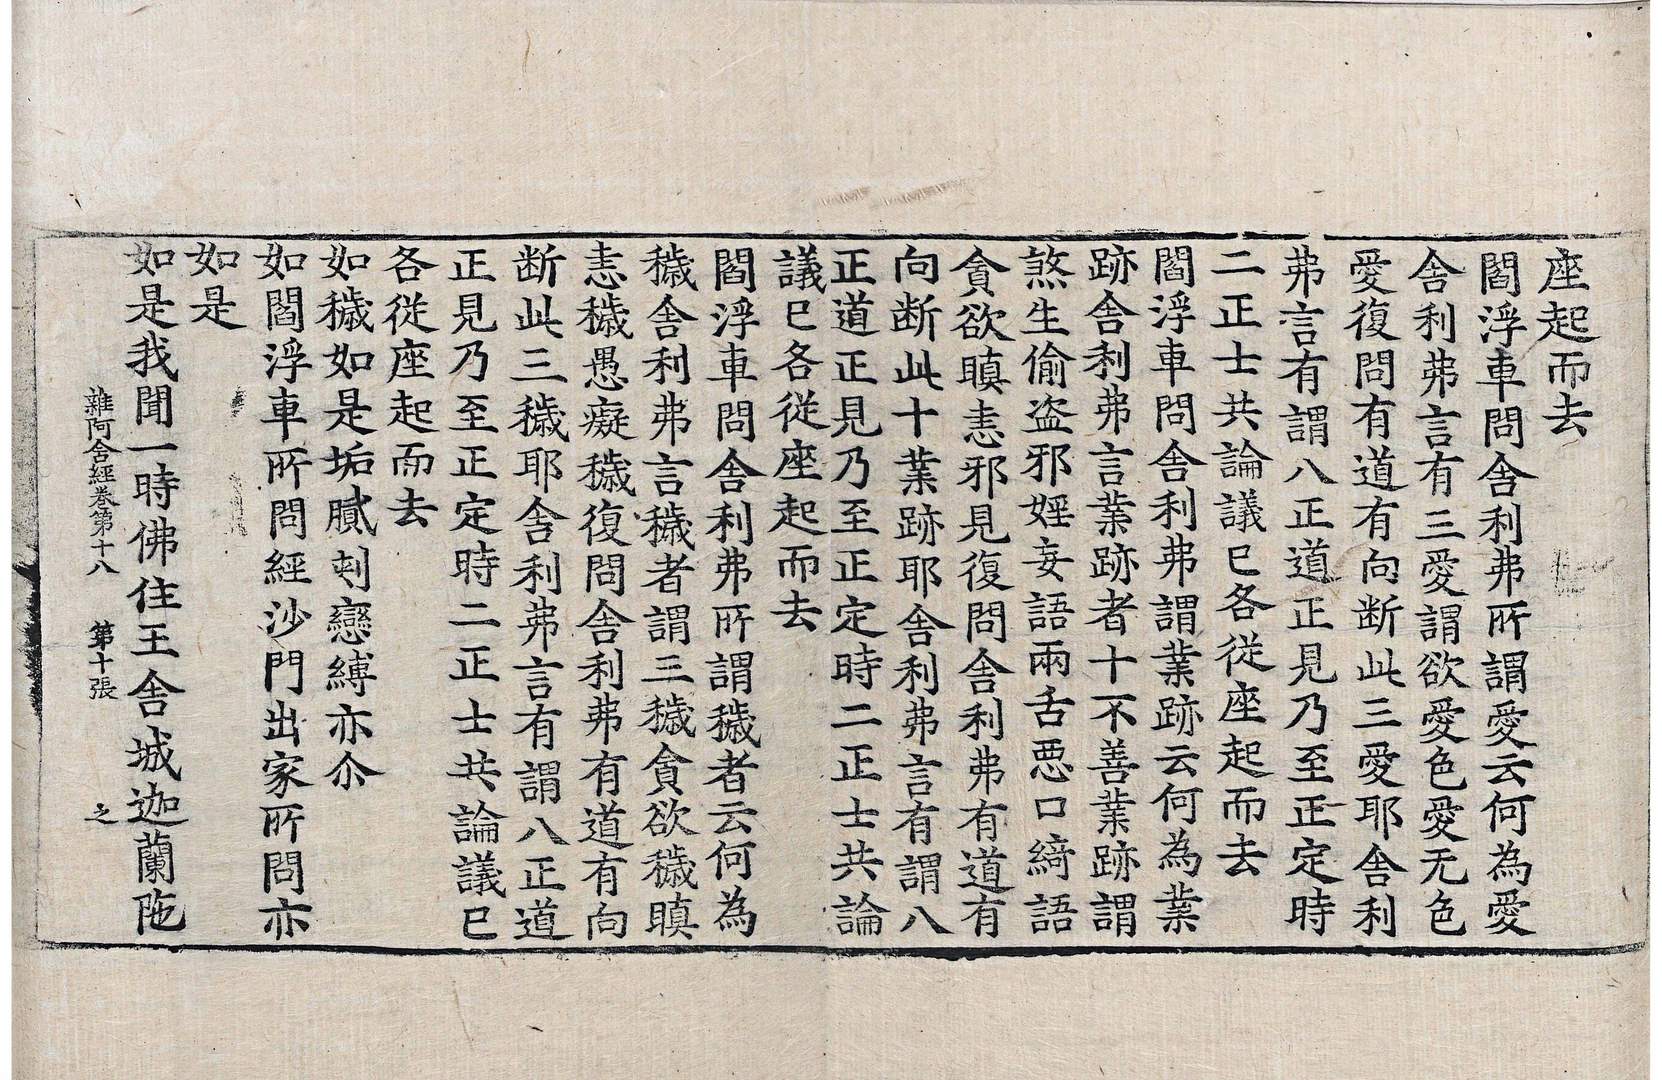 座起而去
閻浮車問舍利弗所謂愛云何為愛
舍利弗言有三愛謂欲愛色愛无色
愛復問有道有向断此三愛耶舍利
弗言有謂八正道正見乃至正定時
二正士共論議已各從座起而去
閻浮車問舍利弗謂業跡云何為業
跡舍利弗言業跡者十不善業跡謂
煞生偷盗邪婬妄語兩舌惡口綺語
貪欲瞋恚邪見復問舍利弗有道有
向断此十業跡耶舍利弗言有謂八
正道正見乃至正定時二正士共論
議已各從座起而去
閻浮車問舍利弗所謂穢者云何為
穢舍利弗言穢者謂三穢貪欲穢瞋
恚穢愚癡穢復問舍利弗有道有向
断此三穢耶舍利弗言有謂八正道
正見乃至正定時二正士共論議已
各從座起而去
如穢如是垢膩刾戀縛亦尒
如閻浮車所問經沙門出家所問亦
如是
如是我聞一時佛住王舍城迦蘭陁
雜阿含經卷第十八 第十張 之